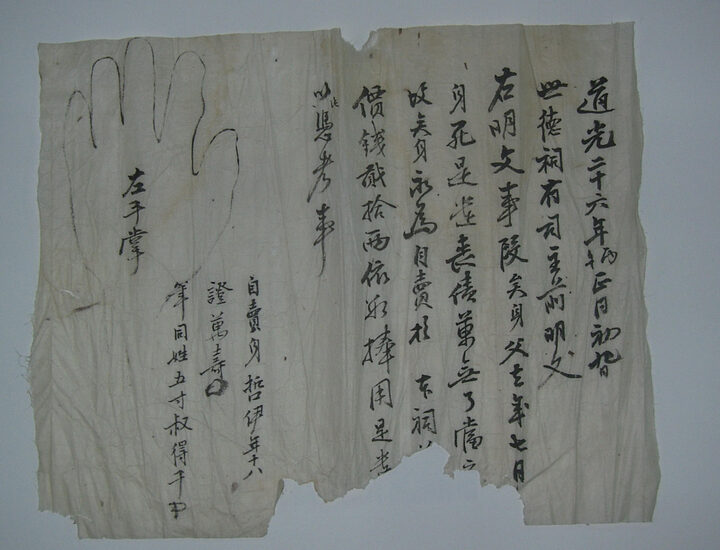 道光二十六年丙午正月初九日
世德祠有司主前明文
右明文事段矣身父去年七月
身死是遣喪債萬無了當
故矣身永爲自賣於 本祠
價錢貳拾兩依數捧用是遣
以此憑考事
自賣身 哲伊年十八
證 萬壽
筆 同姓五寸叔得千
左手掌